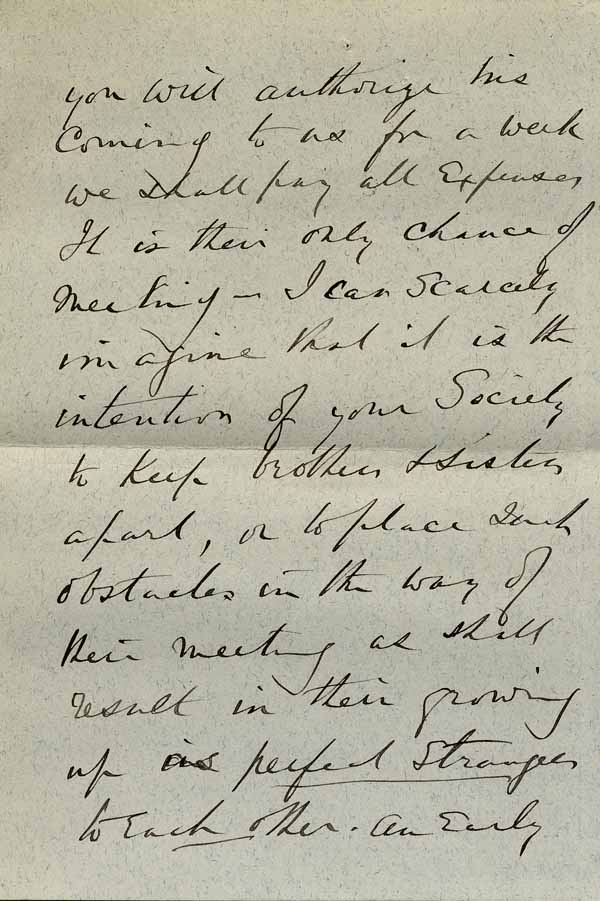 you will authorize his
Coming to us for a week
we shall pay all Expenses
It is their only chance of
meeting - I can Scarcely
imagine that it is the
intention of your Society
to Keep brothers & Sisters
apart, or to place such
obstacles in the way of
their meeting as shall
result in their growing
up as perfect Strangers
to Each other. An Early